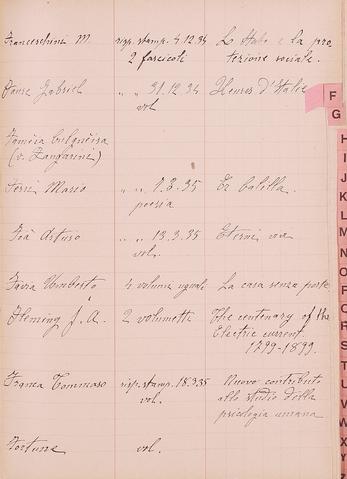 Franceschini M. risp. stamp. 4.12.34 Lo Stato e la pro
2 fascicoli tezione sociale.
Faure Gabriel " " 31.12.34 Heures d'Italie
vol.
F
G
(v. Zangarini)
Ferri Mario " " 7.3.35 Er balilla.
poesia
Feà Arturo " " 13.3.35 Eterni
vol.
Favia Umberto 4 volumi uguali La casa senza porte
Fleming J. A. 2 volumetti The centenary of the
Electric current
1799-1899.
Franca Tommaso risp. stamp. 18.3.35 Nuovo contributo
vol. allo studio della
psicologia umana
Fortune vol.
H
I
J
K
L
M
N
O
P
Q
R
S
T
U
V
W
X
Y
Z